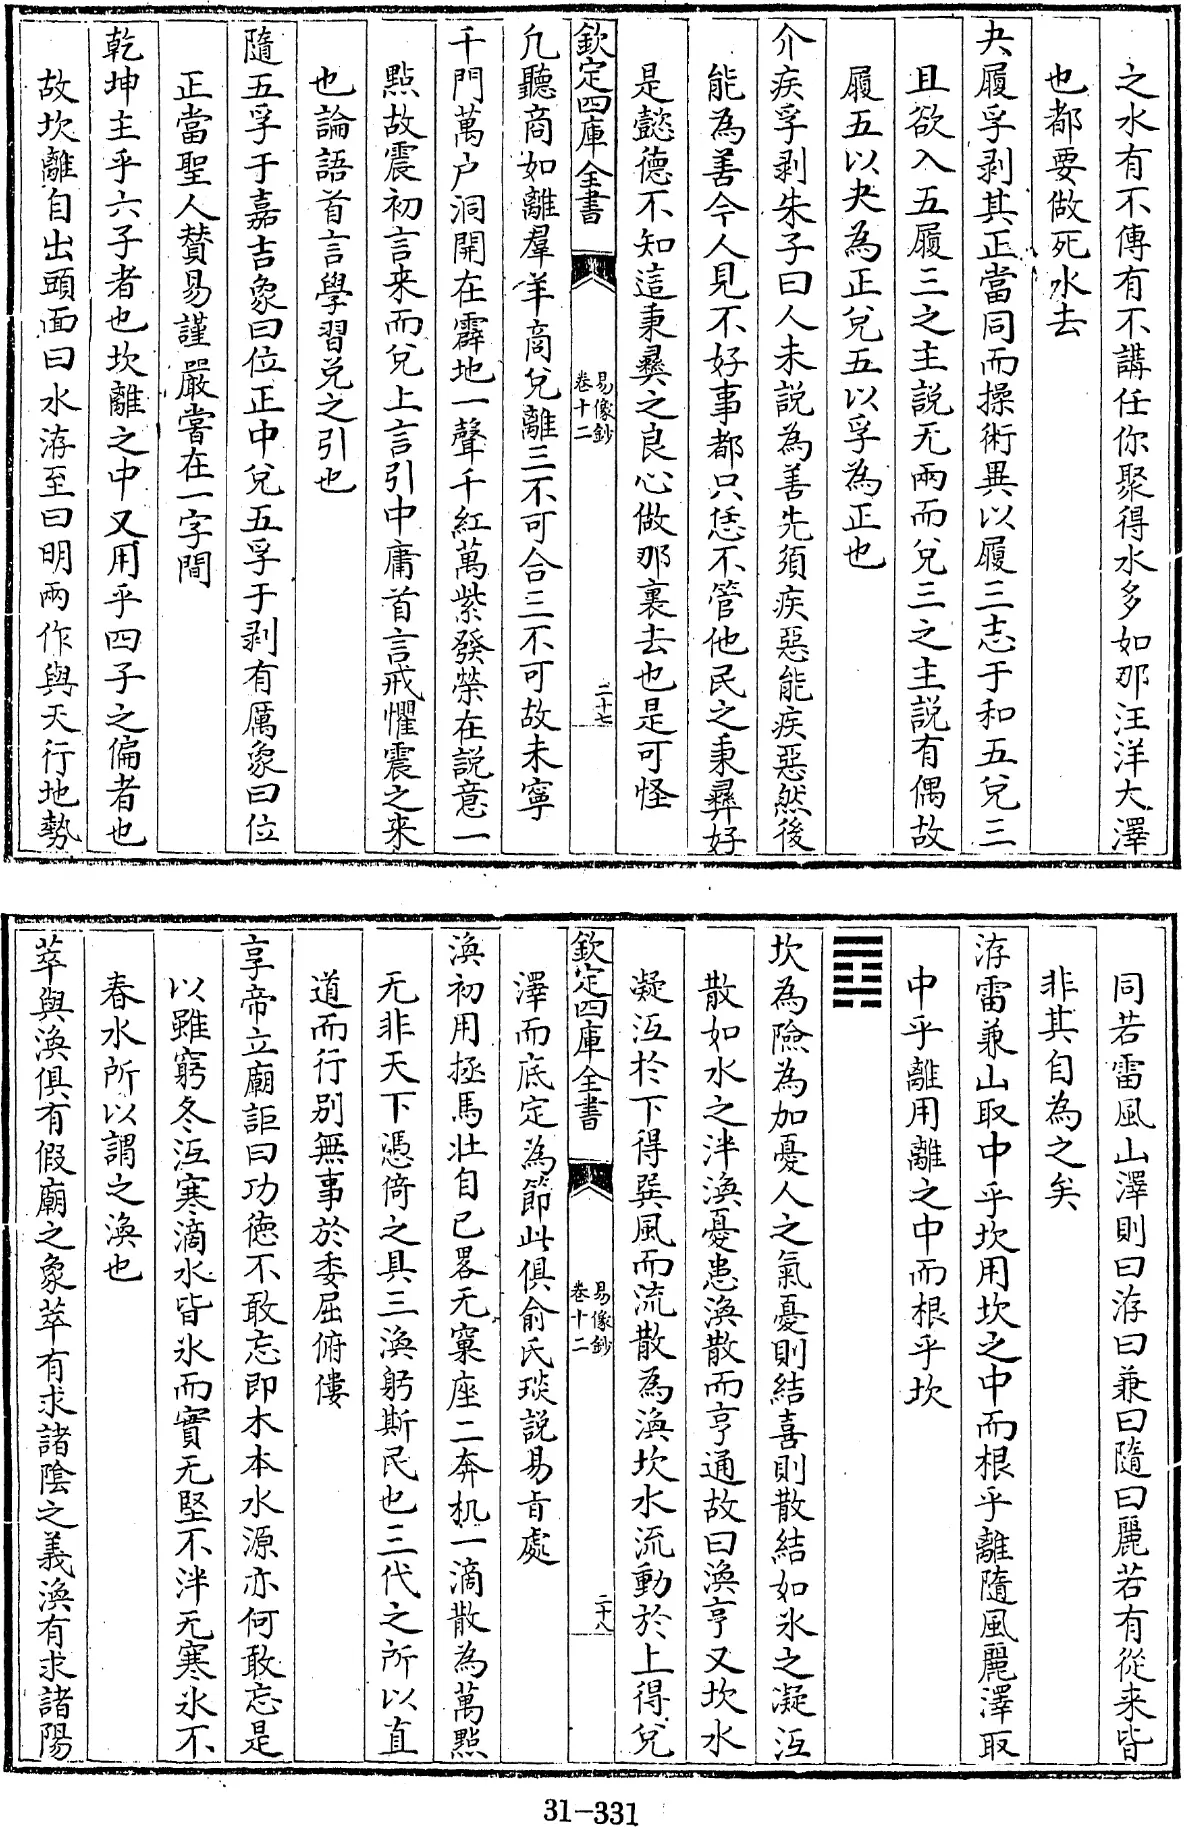 之水有不傳有不講任你聚得水多如那汪洋大澤
也都要做死水去
夬履孚剥其正當同而操術異以履三志于和五兌三
且欲入五履三之主説无兩而兌三之主説有偶故
履五以夬為正兌五以孚為正也
介疾孚剥朱子曰人未説為善先須疾惡能疾惡然後
能為善今人見不好事都只恁不管他民之秉彛好
是懿德不知這秉彛之良心做那裏去也是可怪
欽定四庫全書
易像鈔
卷十二
二十七
凢聽商如離羣羊商兌離三不可合三不可故未寧
千門萬户洞開在霹地一聲千紅萬紫發榮在説意一
點故震初言来而兌上言引中庸首言戒懼震之来
也論語首言學習兌之引也
隨五孚于嘉吉象曰位正中兌五孚于剥有厲象曰位
正當聖人賛易謹嚴嘗在一字間
乾坤主乎六子者也坎離之中又用乎四子之偏者也
故坎離自出頭面曰水洊至曰明兩作與天行地勢
同若雷風山澤則曰洊曰兼曰隨曰麗若有從来皆
非其自為之矣
洊雷兼山取中乎坎用坎之中而根乎離隨風麗澤取
中乎離用離之中而根乎坎
䷺
坎為險為加憂人之氣憂則結喜則散結如氷之凝沍
散如水之泮渙憂患渙散而亨通故曰渙亨又坎水
凝沍於下得巽風而流散為渙坎水流動於上得兌
澤而底定為節此俱俞氏琰説易㫖處
欽定四庫全書
易像鈔
卷十二
二十八
渙初用拯馬壯自己畧无窠座二奔机一滴散為萬點
无非天下憑倚之具三渙躬斯民也三代之所以直
道而行别無事於委屈俯僂
享帝立廟詎曰功德不敢忘即木本水源亦何敢忘是
以雖窮冬沍寒滴水皆氷而實无堅不泮无寒氷不
春水所以謂之渙也
萃與渙俱有假廟之象萃有求諸隂之義渙有求諸陽
31-331